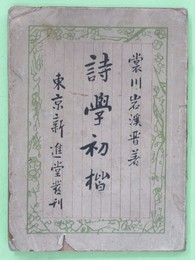 裳川岩溪晋著
詩學初楷
東京新進堂發刊